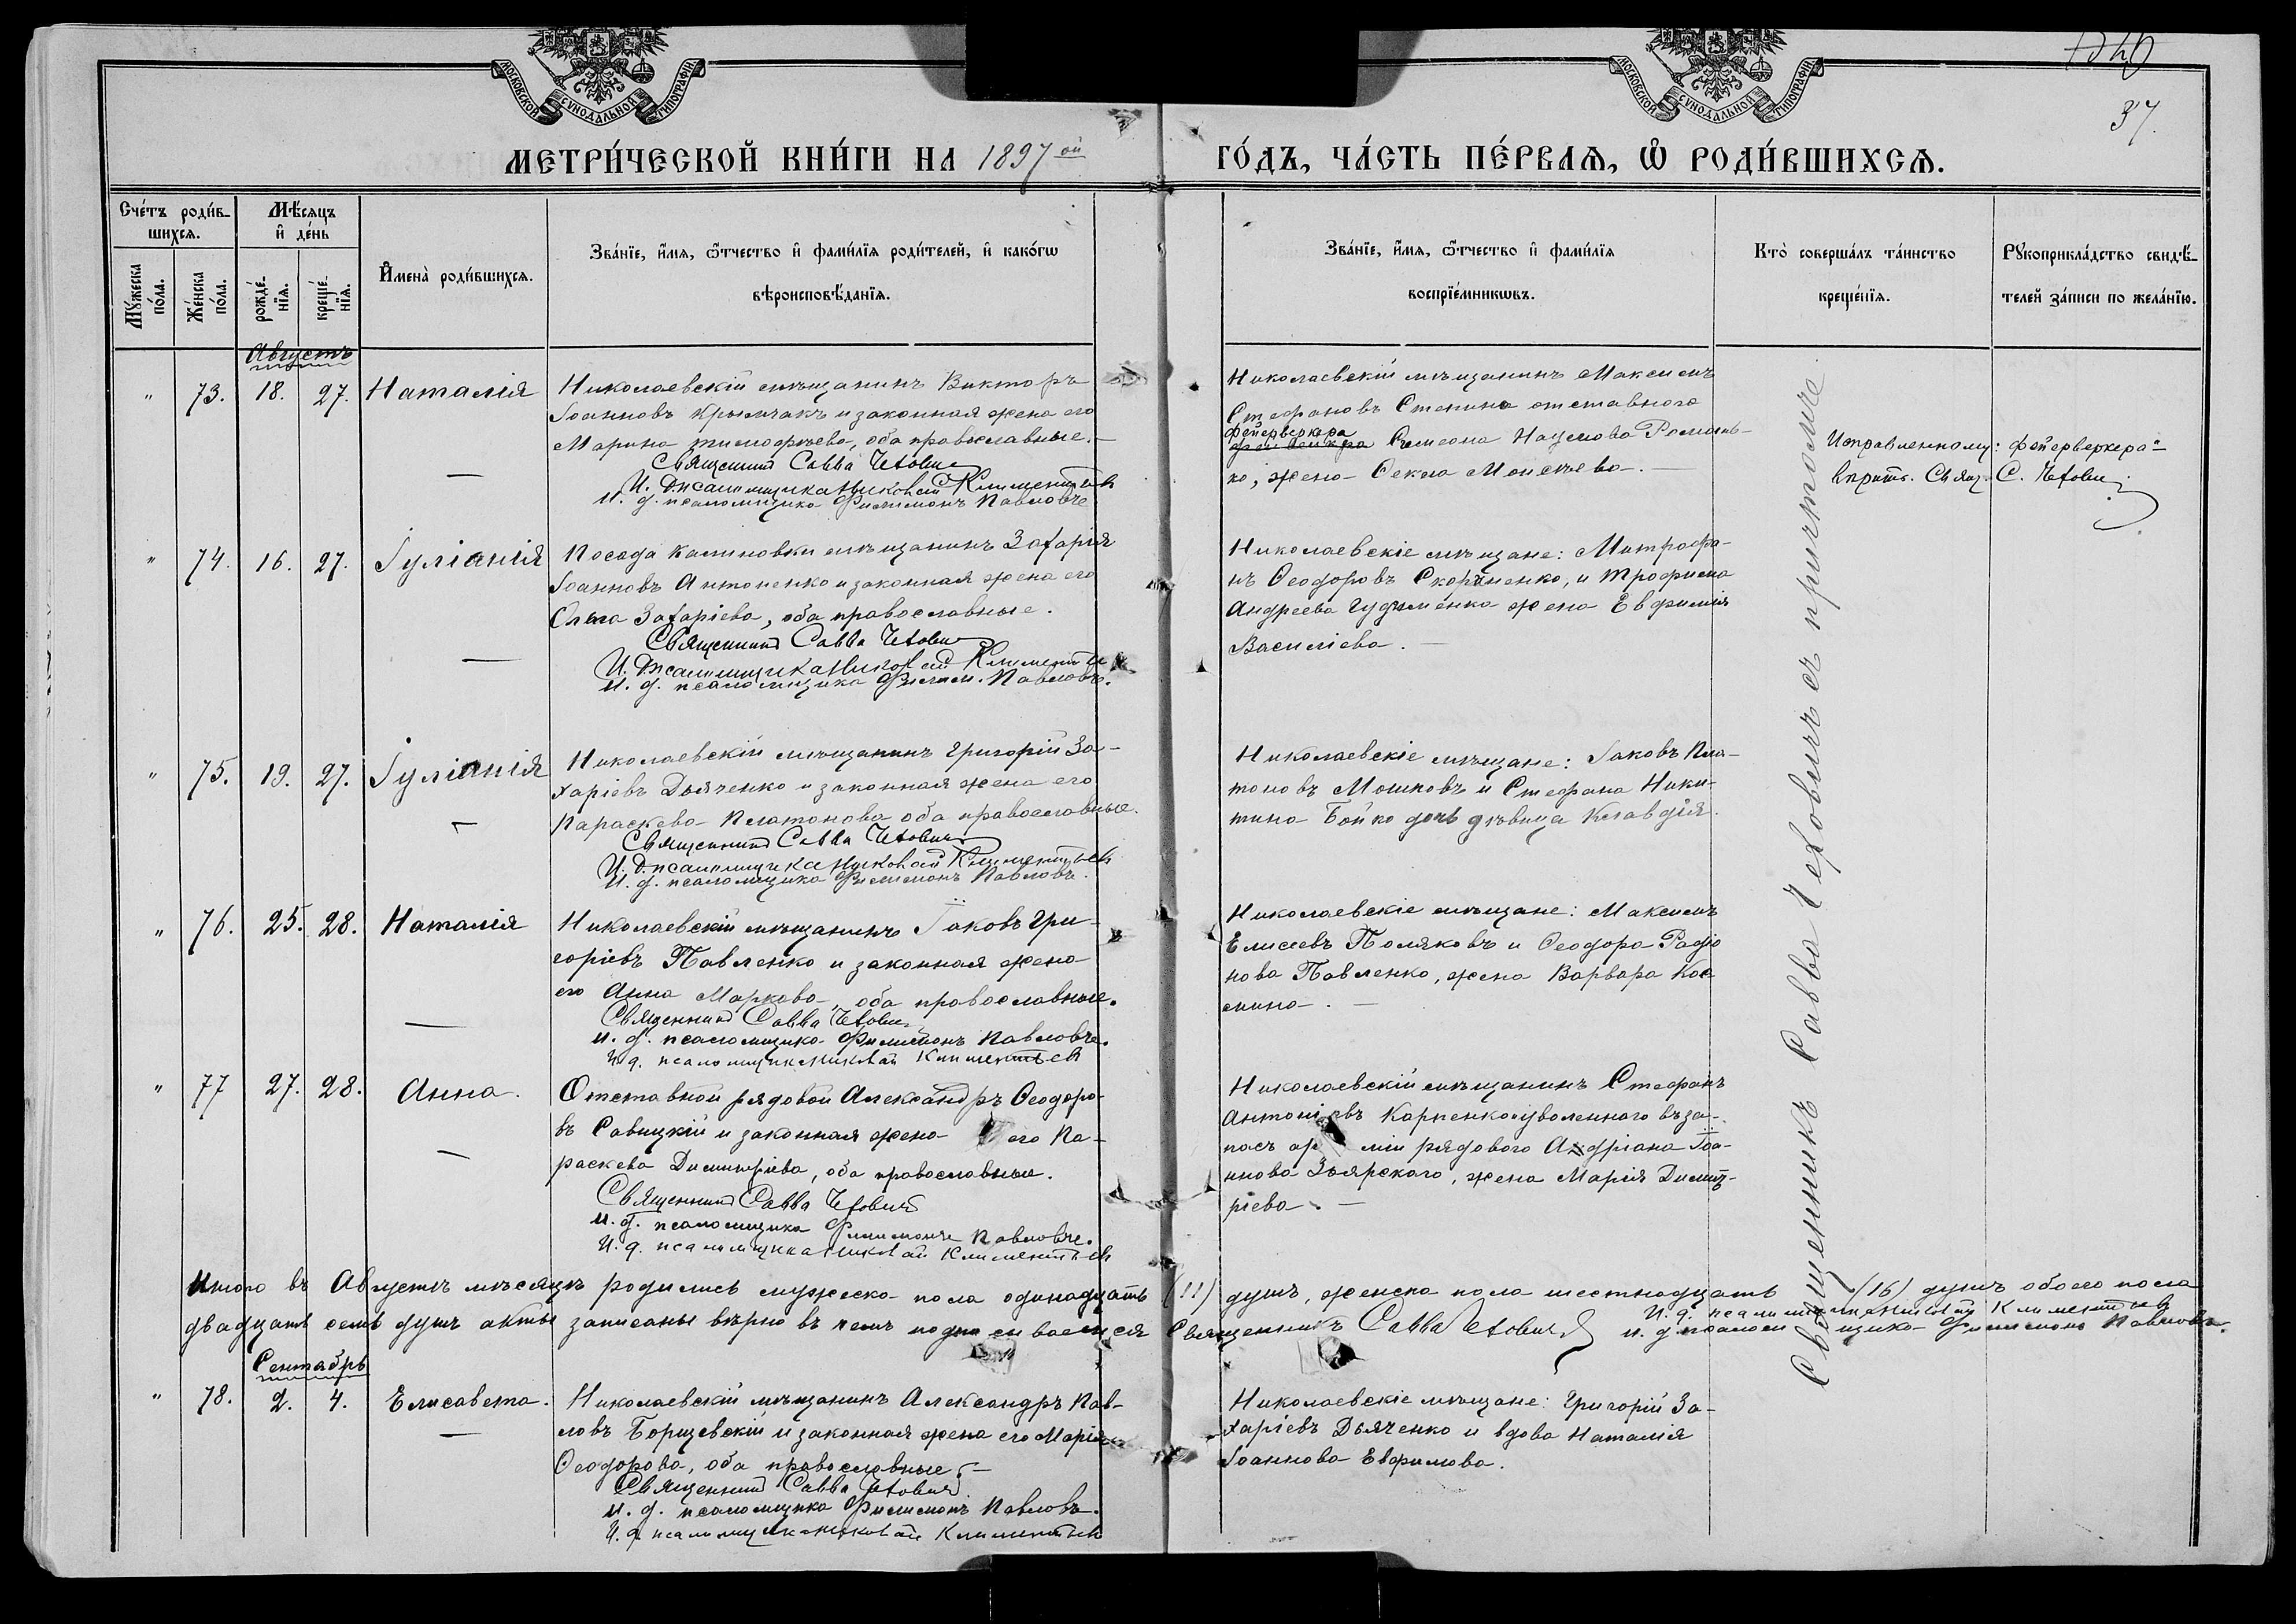 МОСКОВСКОЙ СѴНОДАЛЬНОЙ ТИПОГРАФІИ
МОСКОВСКОЙ СѴНОДАЛЬНОЙ ТИПОГРАФІИ
37.
МЕТРИ́ЧЕСКОЙ КНИ́ГИ НА 1897ой ГО́ДЪ, ЧА́СТЬ ПЕ́РВАѦ, Ѽ РОДИ́ВШИХСѦ.
Сче́тъ роди́в-
шихсѧ.
Мѣ́сѧцъ
и҆ де́нь
Мꙋ́жеска
по́ла.
Же́нска
по́ла.
рожде́-
нїѧ.
креще́-
нїѧ.
И҆мена̀ роди́вшихсѧ.
Зва́нїе, и҆́мѧ, ѻ҆́тчество и҆ фами́лїѧ роди́телей, и҆ како́гѡ
вѣроисповѣ́данїѧ.
Зва́нїе, и҆́мѧ, ѻ҆́тчество и҆ фами́лїѧ
воспрїе́мникѡвъ.
Кто̀ соверша́лъ та́инство
креще́нїѧ.
Рꙋкоприкла́дство свидѣ́-
телей за́писи по жела́нїю.
Августъ
" 73. 18. 27. Наталія
Николаевскій мѣщанинъ Викторъ
Іоанновъ Крымчакъ и законная жена его
Марина Тимофѣева, оба православные.—
Священникъ Савва Чехович
И. д. псаломщика Николай Климентьев
И. д. псаломщика Филимонъ Павловъ.
Николаевскій мѣщанинъ Максимъ
Стефановъ Степина отставнаго
фейерверкера
Симеона Наумова Романен-
ко, жена Ѳекла Моисѣева.—
Исправленному: "фейерверкера"
вѣрить. Свящ. С. Чехович
" 74. 16. 27. Іуліанія
Посада Калиновки мѣщанинъ Захарія
Іоанновъ Антоненко и законная жена его
Ольга Захаріева, оба православные.
Священникъ Савва Чехович
И. д. псаломщика Николай Климентьев
И. д. псаломщика Филим. Павловъ.
Николаевскіе мѣщане: Митрофа-
нъ Ѳеодоровъ Скориненко, и Трофима
Андреева Гудименка жена Евфимія
Василіева.—
" 75. 19. 27. Іуліанія
Николаевскій мѣщанинъ Григорій За-
харіевъ Дьяченко и законная жена его
Параскева Платонова оба православные.
Священникъ Савва Чехович
И. д. псаломщика Николай Климентьев
И. д. псаломщика Филимонъ Павловъ.
Николаевскіе мѣщане: Іаковъ Пла-
тоновъ Мошковъ и Стефана Ники-
тина Бойко дочь дѣвица Клавдія.
" 76. 25. 28. Наталія
Николаевскій мѣщанинъ Іаковъ Гри-
горіевъ Павленко и законная жена
его Анна Маркова, оба православные.
Священникъ Савва Чехович
И. д. псаломщика Филимонъ Павловъ.
И. д. псаломщика Николай Климентьев
Николаевскіе мѣщане: Максимъ
Елисеевъ Поляковъ и Ѳеодора Радіо
нова Павленко, жена Варвара Кос
мина.—
" 77 27. 28. Анна.
Отставной рядовой Александръ Ѳеодоро-
въ Савицкій и законная жена его Па-
раскева Димитріева, оба православные.
Священникъ Савва Чехович
И. д. псаломщика Филимонъ Павловъ.
И. д. псаломщика Николай Климентьев
Николаевскій мѣщанинъ Стефанъ
Антоніевъ Карпенко и уволеннаго въ за-
пасъ арміи рядового Андріана Іоа-
ннова Збярского, жена Марія Димит-
ріева.—
Священникъ Савва Чеховичъ съ причтомъ
Итого въ Августѣ мѣсяцѣ родились мужеска пола одинадцать (11) душъ, женска пола шестнадцать (16) душъ обоего пола
двадцать семь душъ акты записаны вѣрно въ чемъ подписываемся Священникъ Савва Чехович И. д. псаломщика Николай Климентьев
И. д. псаломщика Филимонъ Павловъ.
Сентябрь
" 78. 2. 4. Елисавета.
Николаевскій мѣщанинъ Александръ Пав-
ловъ Борщевскій и законная жена его Марія
Ѳеодорова, оба православные.—
Священникъ Савва Чехович
И. д. псаломщика Филимонъ Павловъ.
И. д. псаломщика Николай Климентьев
Николаевскіе мѣщане: Григорій За-
харіевъ Дьяченко и вдова Наталія
Іоаннова Евфимова.